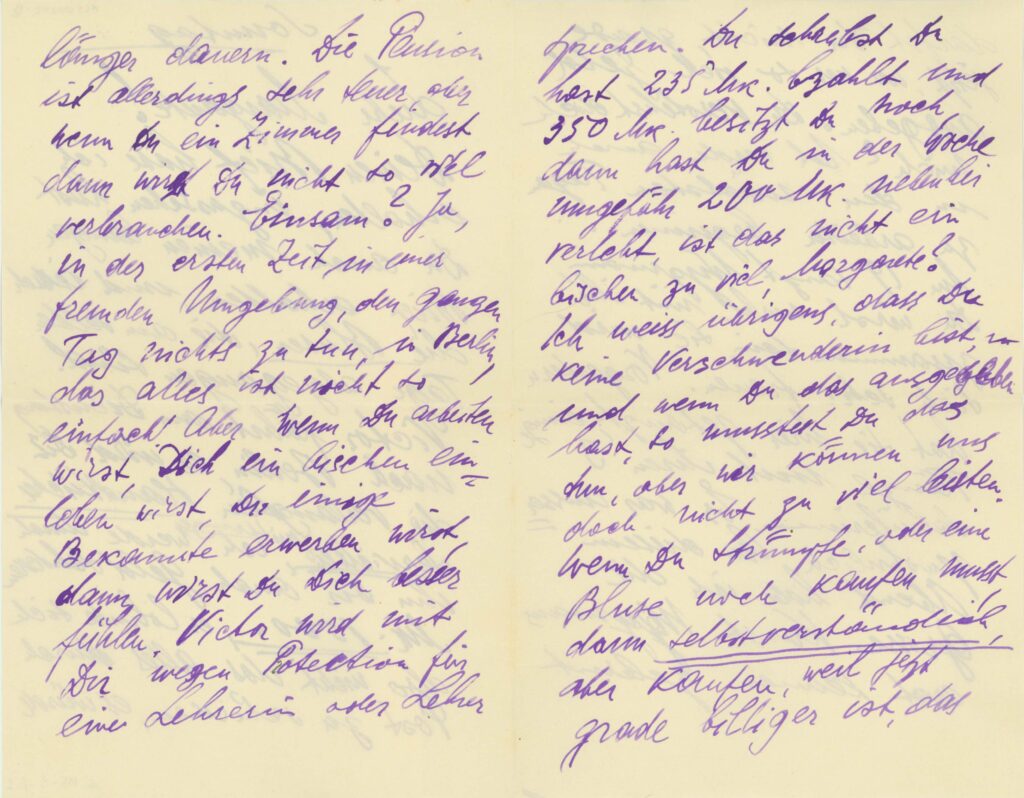 länger dauern. Die Pension
ist allerdings sehr teuer, aber
wenn Du ein Zimmer findest
dann wirst Du nicht so viel
verbrauchen. Einsam? Ja,
in der ersten Zeit in einer
fremden Umgebung, den ganzen
Tag nichts zu tun, in Berlin,
das alles ist nicht so
einfach! Aber wenn Du arbeiten
wirst, Dich ein bischen ein=
leben wirst, Du einige
Bekannte erwerben wirst,
dann wirst Du Dich besser
fühlen. Victor wird mit
Dir wegen Protection für
eine Lehrerin oder Lehrer
sprechen. Du schreibst Du
hast 235 Mk. bezahlt und
350 Mk. besitzt Du noch,
dann hast Du in der Woche
ungefähr 200 Mk. nebenbei
verlebt, ist das nicht ein
bischen zu viel, Margarete?
Ich weiss übrigens, dass Du
keine Verschwenderin bist,
und wenn Du das ausgegeben
hast, so musstest Du das
tun, aber wir können uns
doch nicht zu viel leisten.
Wenn Du Strümpfe, oder eine
Bluse noch kaufen musst,
dann selbstverständlich,
aber kaufen, weil jetzt
grade billiger ist, das